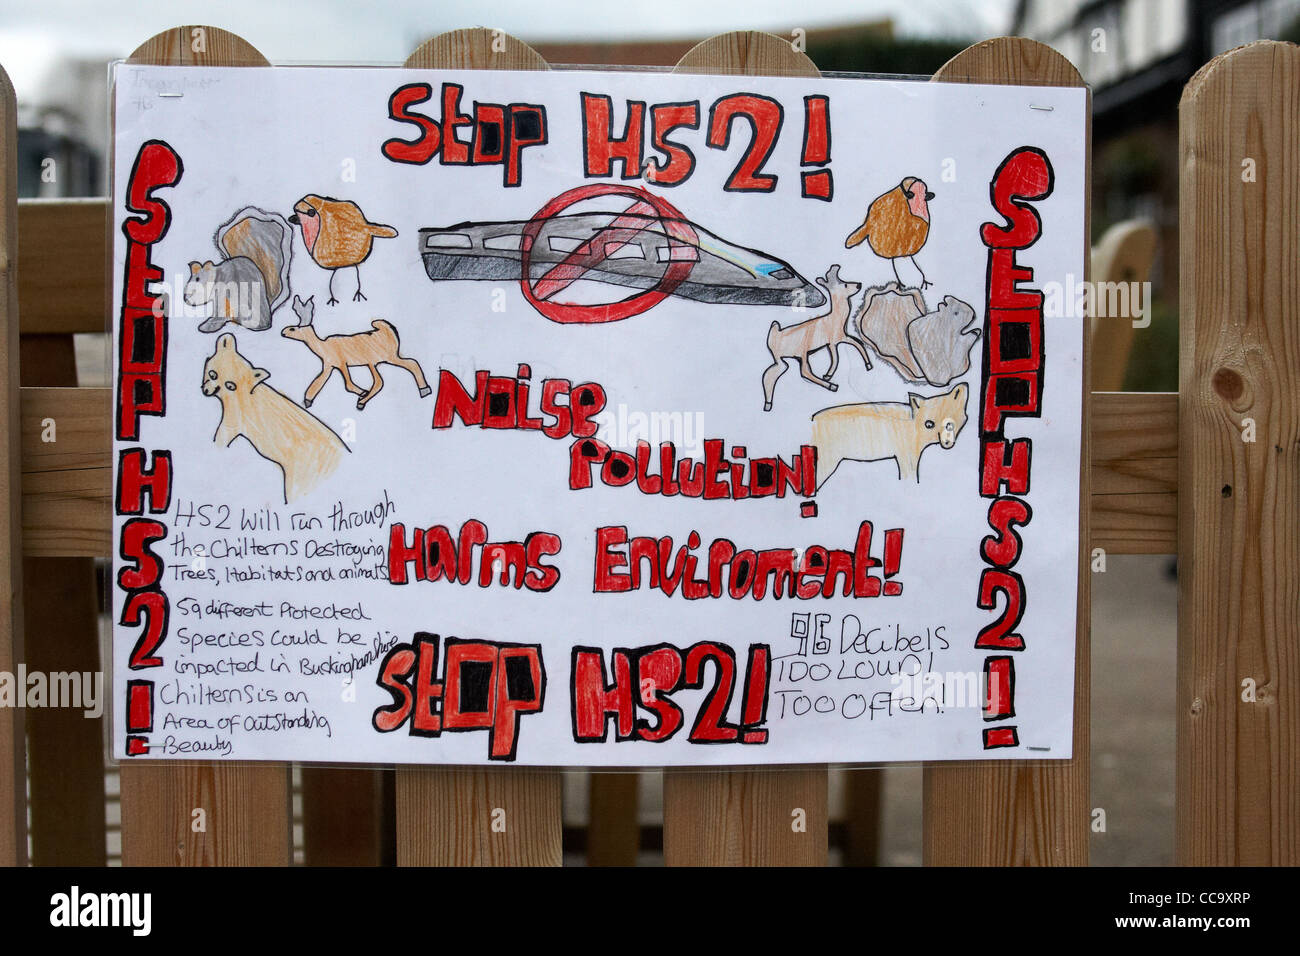 7G
Stop HS2!
Stop HS2!
Stop HS2!
Noise
Pollution!
HS2 will run through
the Chilterns Destroying
Trees, Habitats and animals
Harms Enviroment!
59 different Protected
species could be
impacted in Buckinghamshire
Chilterns is an
Area of Outstanding
Beauty
Stop HS2!
96 Decibels
Too Loud!
Too Often!
alamy
Image ID: CC9XRP
www.alamy.com